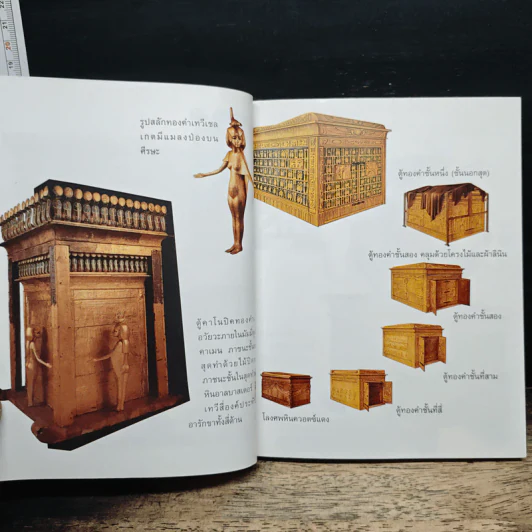 รูปสลักทองคำเทวีเซล
เกตมีแมลงป่องบน
ศีรษะ
ตู้คาโนปิคทองคำ
อวัยวะภายในมัมมี่
คาเมน ภาชนะชั้น
สุดทำด้วยไม้ปิด
ภาชนะชั้นในสุดทำ
หินอาลบาสเตอร์
เทวีสี่องค์ประจำ
อารักขาทั้งสี่ด้าน
ตู้ทองคำชั้นหนึ่ง (ชั้นนอกสุด)
ตู้ทองคำชั้นสอง คลุมด้วยโครงไม้และผ้าลินิน
ตู้ทองคำชั้นสอง
ตู้ทองคำชั้นที่สาม
ตู้ทองคำชั้นที่สี่
โลงศพหินควอตซ์แดง